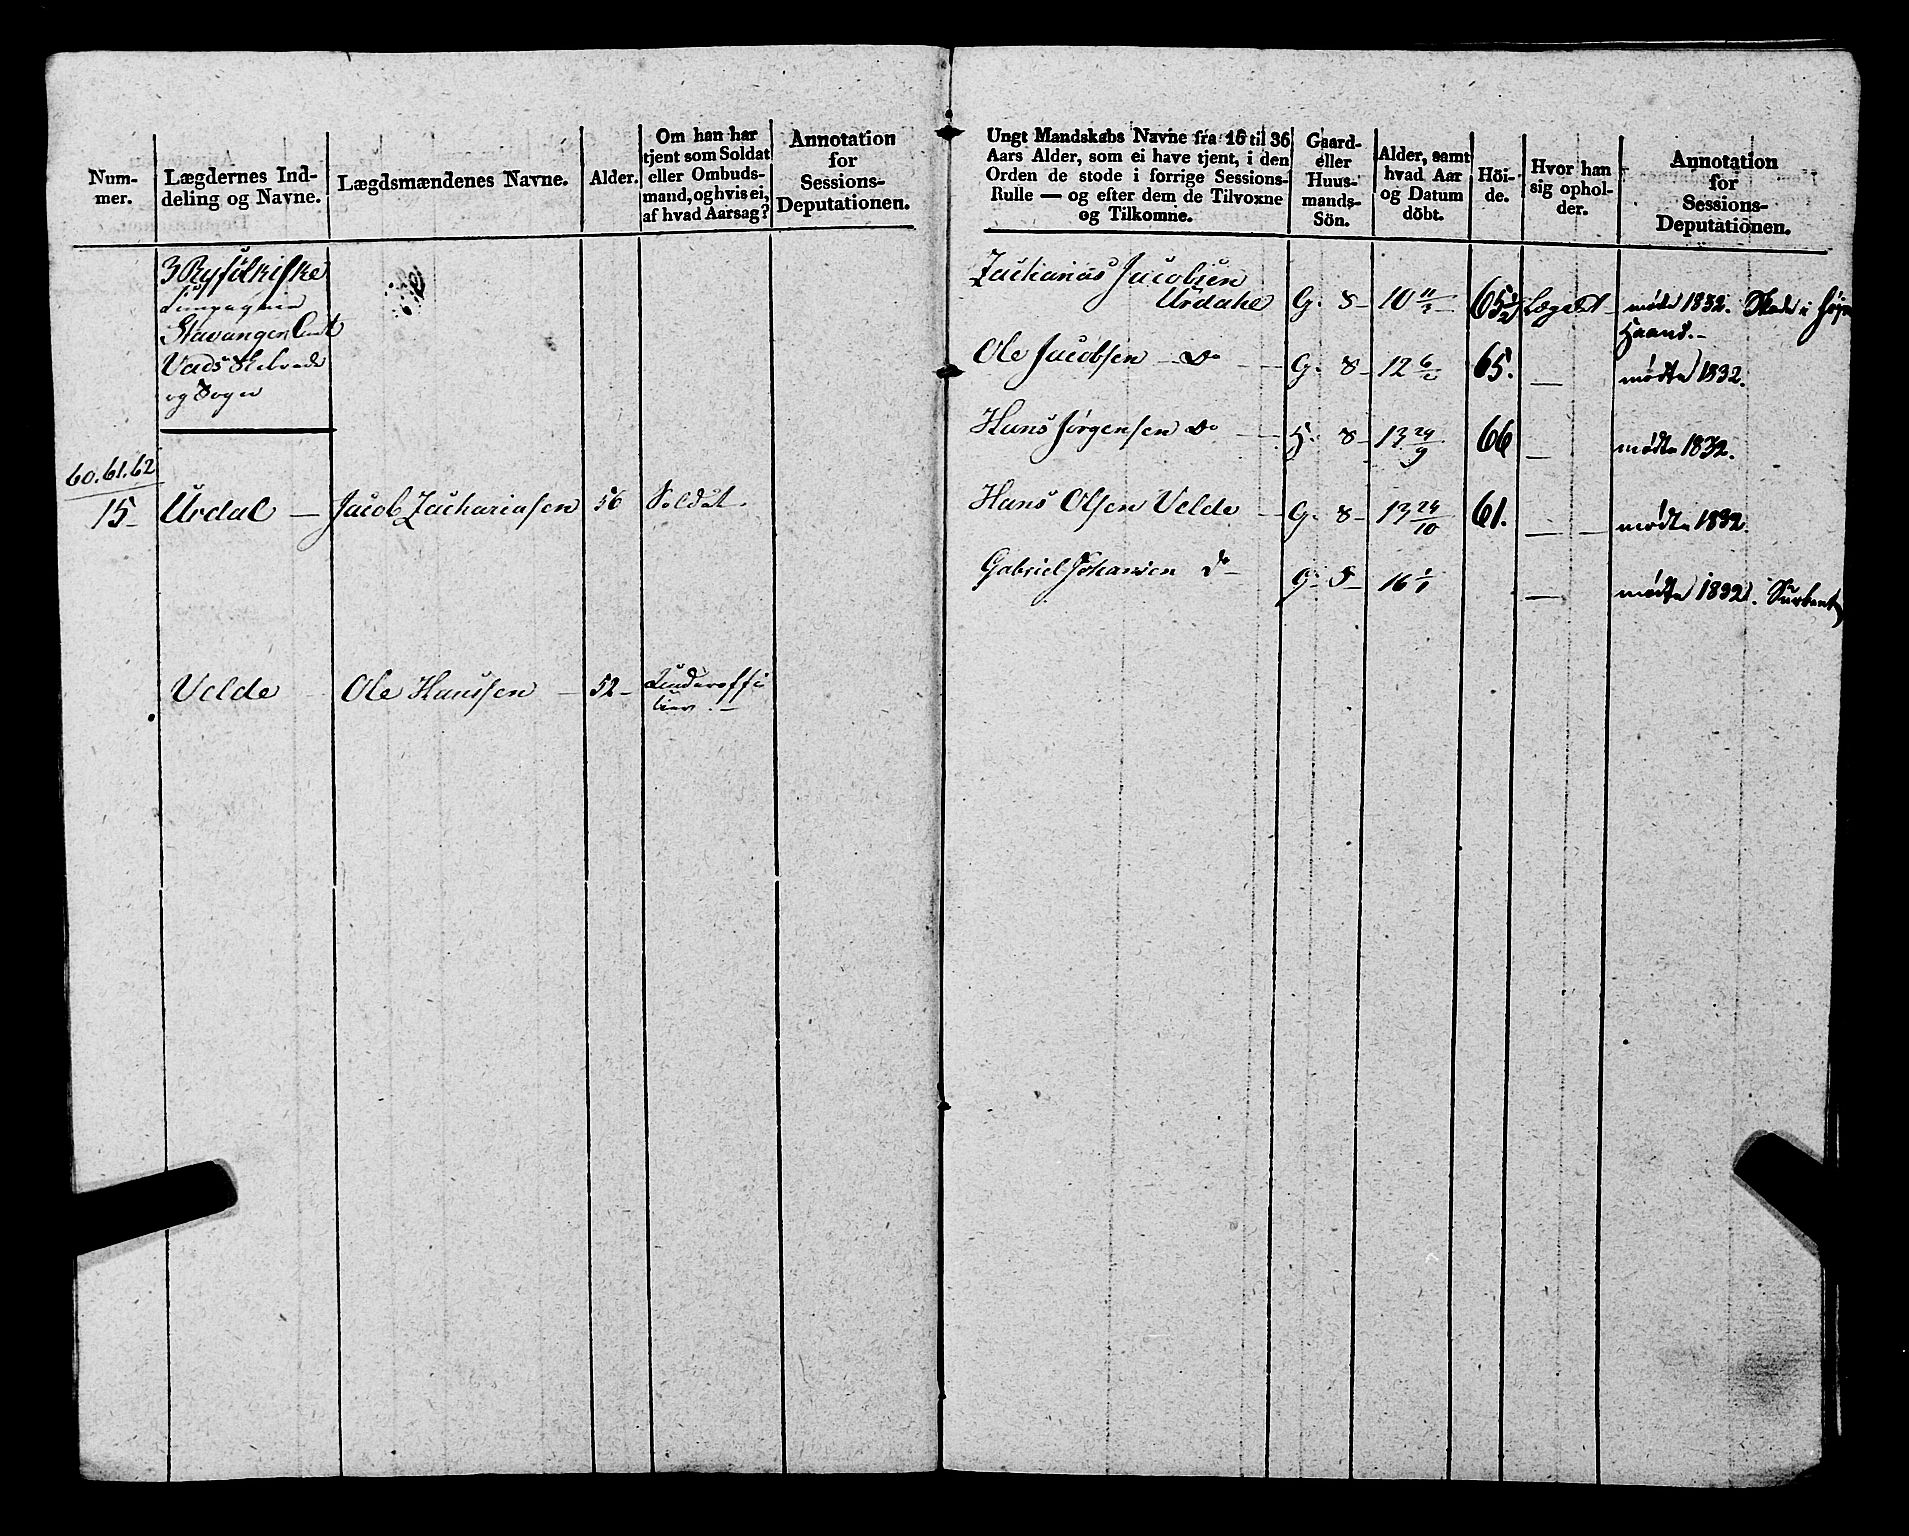 Num-
mer.
Lægdernes Ind-
deling og Navne.
Lægdsmændenes Navne.
Alder.
Om han har
tjent som Soldat
eller Ombuds-
mand, og hvis ei,
af hvad Aarsag?
Annotation
for
Sessions-
Deputationen.
3 Ryfylkiske
Stavanger Amt
og Sogn
60. 61. 62
15 Urdal — Jacob Zachariasen 56 Soldat.
Velde Ole Hanssen — 52 — Underoffi
cier. —
Ungt Mandskabs Navne fra 16 til 36
Aars Alder, som ei have tjent, i den
Orden de stode i forrige Sessions-
Rulle — og efter dem de Tilvoxne
og Tilkomne.
Gaard-
eller
Huus-
mands-
Sön.
Alder, samt
hvad Aar
og Datum
döbt.
Höi-
de.
Hvor han
sig ophol-
der.
Annotation
for
Sessions-
Deputationen.
Zacharias Jacobsen
Urdahl G. 8 — 10 11/3 — 65 1/2 Lægdet — mødte 1832. Skade i høire
Haand. —
Ole Jacobsen — Do — G. 8 — 12 6/12 65. — mødte 1832.
Hans Jørgensen Do — H. 8 — 13 24/9 66 — mødte 1832.
Hans Olsen Velde — G. 8 — 13 24/10 61. — mødte 1832
Gabriel Johansen Do — G. 5 — 16 1/1 — mødte 1832.